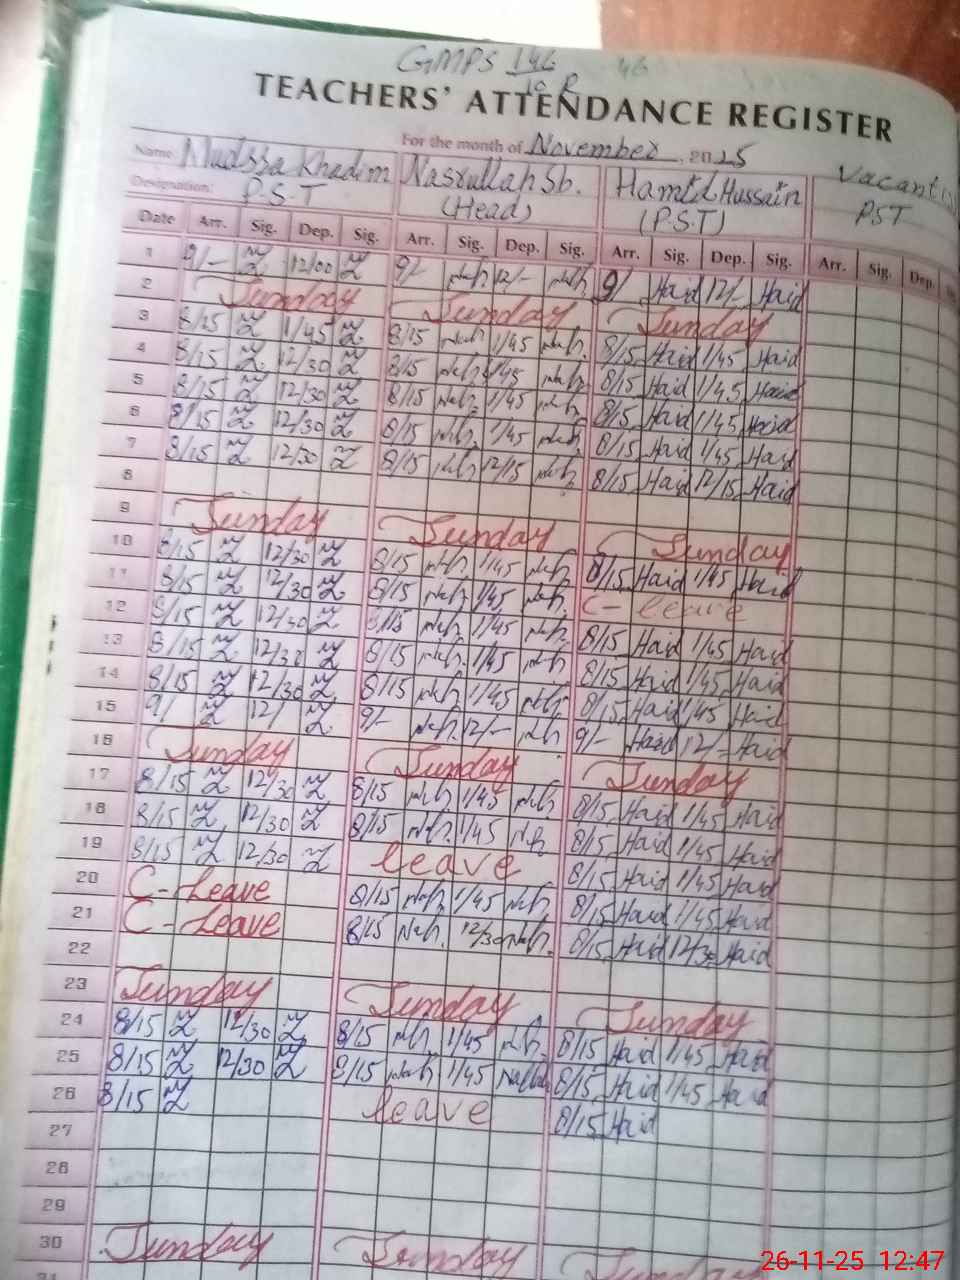 GMPS 146
10 R
46
TEACHERS' ATTENDANCE REGISTER
For the month of November, 2025
Name Khadim Nasrullah Sb. Hamid Hussain Vacant
Designation: P.S.T (Head) (P.S.T) PST
Date Arr. Sig. Dep. Sig. Arr. Sig. Dep. Sig. Arr. Sig. Dep. Sig. Arr. Sig. Dep.
1 9/- 12/00 9/- 12/- 9/ Haid 12/- Haid
2 Sunday Sunday Sunday
3 8/15 1/45 8/15 1/45 8/15 Haid 1/45 Haid
4 8/15 12/30 8/15 1/45 8/15 Haid 1/45 Haid
5 8/15 12/30 8/15 1/45 8/15 Haid 1/45 Haid
6 8/15 12/30 8/15 1/45 8/15 Haid 1/45 Haid
7 8/15 12/30 8/15 12/15 8/15 Haid 12/15 Haid
8
9 Sunday Sunday Sunday
10 8/15 12/30 8/15 1/45 8/15 Haid 1/45 Haid
11 8/15 12/30 8/15 1/45 C- leave
12 8/15 12/30 8/15 1/45 8/15 Haid 1/45 Haid
13 8/15 12/30 8/15 1/45 8/15 Haid 1/45 Haid
14 8/15 12/30 8/15 1/45 8/15 Haid 1/45 Haid
15 9/ 12/ 9/- 12/- 9/- Haid 12/- Haid
16 Sunday Sunday Sunday
17 8/15 12/30 8/15 1/45 8/15 Haid 1/45 Haid
18 8/15 12/30 8/15 1/45 8/15 Haid 1/45 Haid
19 8/15 12/30 leave 8/15 Haid 1/45 Haid
20 C- Leave 8/15 1/45 8/15 Haid 1/45 Haid
21 C- Leave 8/15 12/30 8/15 Haid 12/30 Haid
22
23 Sunday Sunday Sunday
24 8/15 12/30 8/15 1/45 8/15 Haid 1/45 Haid
25 8/15 12/30 8/15 1/45 8/15 Haid 1/45 Haid
26 8/15 leave 8/15 Haid
27
28
29
30 Sunday Sunday Sunday
31
26-11-25 12:47